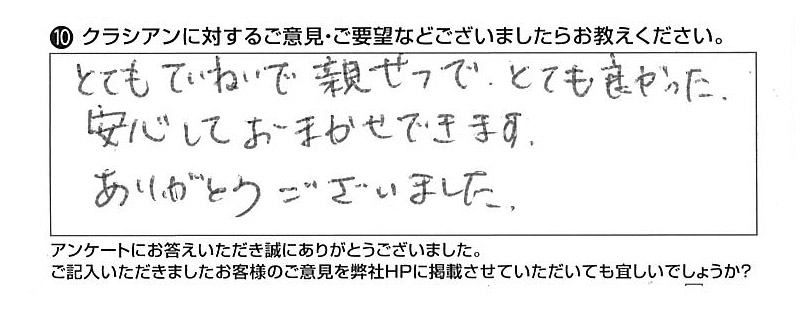 ⑩ クラシアンに対するご意見・ご要望などございましたらお教えください。
とてもていねいで 親せつで、とても良かった。
安心しておまかせできます。
ありがとうございました。
アンケートにお答えいただき誠にありがとうございました。
ご記入いただきましたお客様のご意見を弊社HPに掲載させていただいても宜しいでしょうか?